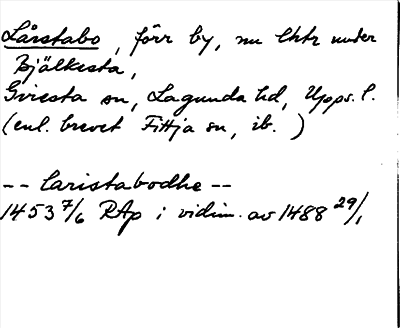 Lårstabo, förr by, nu lhtr under
Bjälkesta,
Griesta sn, Lagunda hd, Upps. l.
(enl. brevet Fittja sn, ib. )
-- laristabodhe --
1453 7/6 RAp i vidim. av 1488 29/1